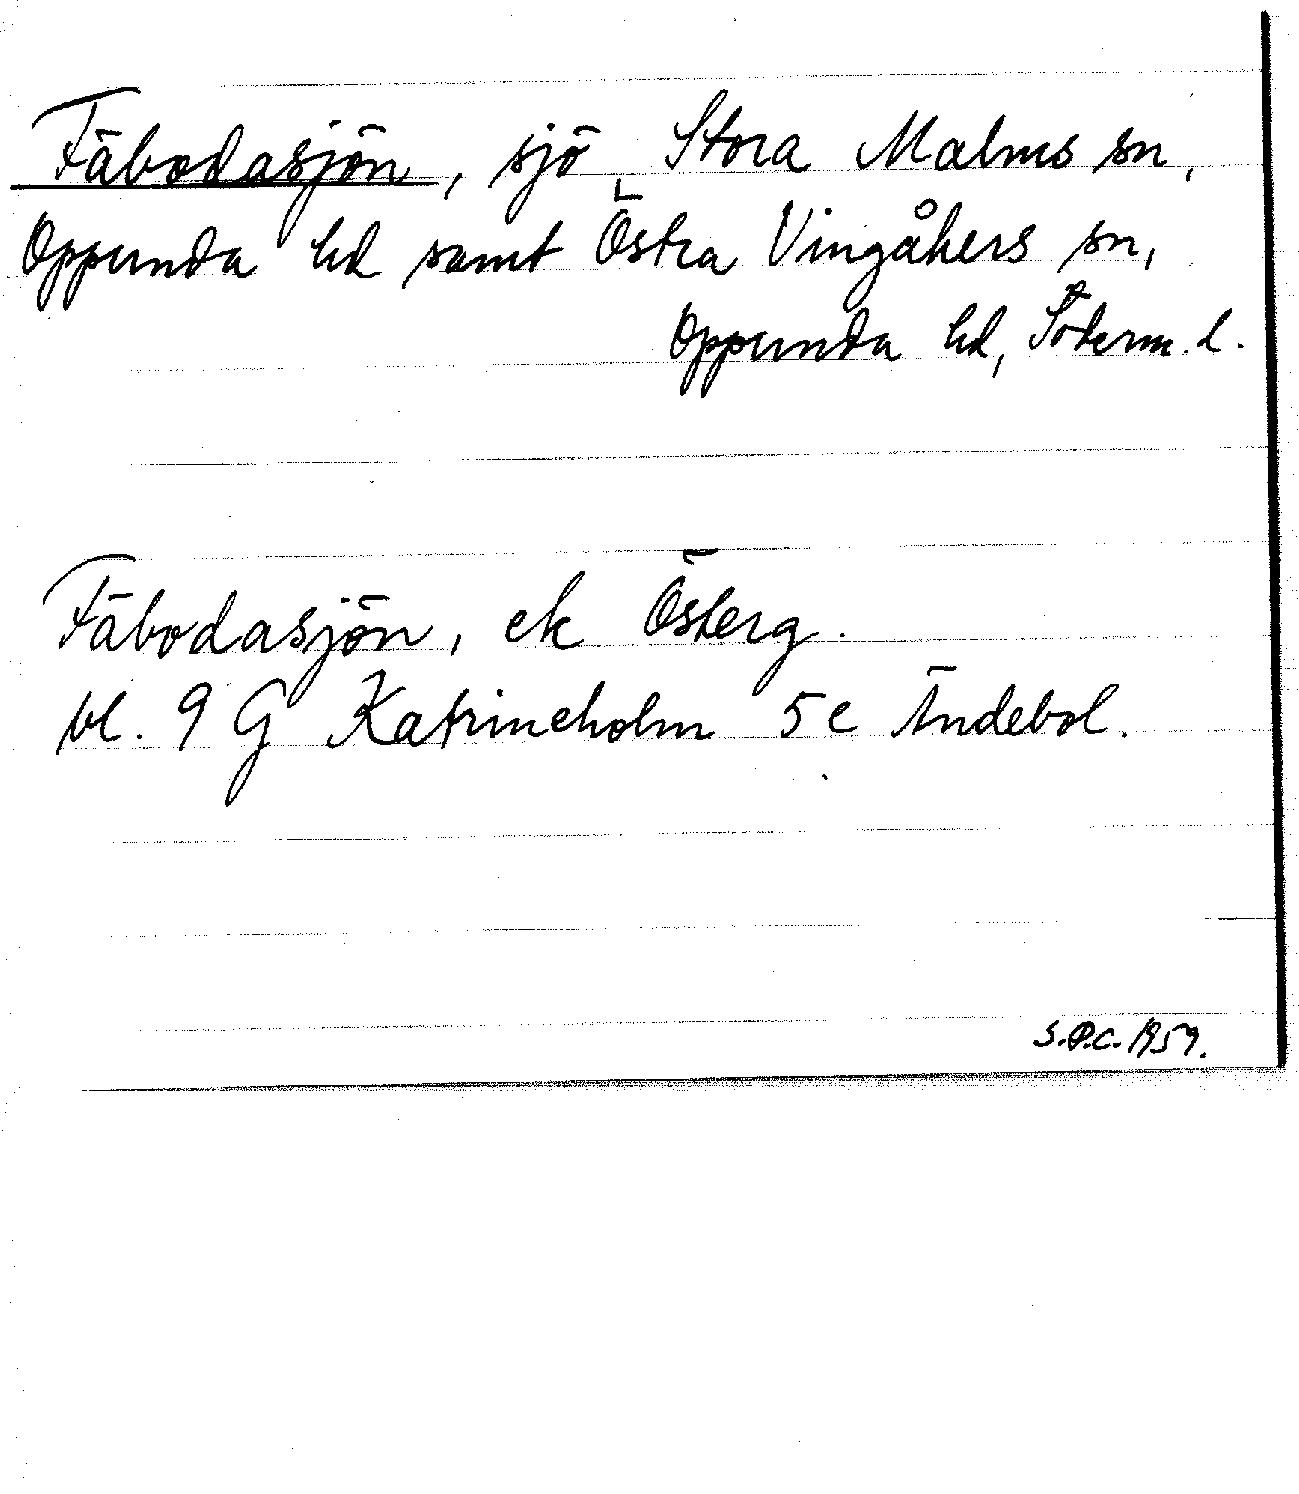 Fäbodasjön, sjö, Stora Malms sn,
Oppunda hd samt Östra Vingåkers sn,
Oppunda hd, Söderm. l.
Fäbodasjön, ek Österg.
bl. 9 G Katrineholm 5e Ändebol.
S.P.C. 1959.